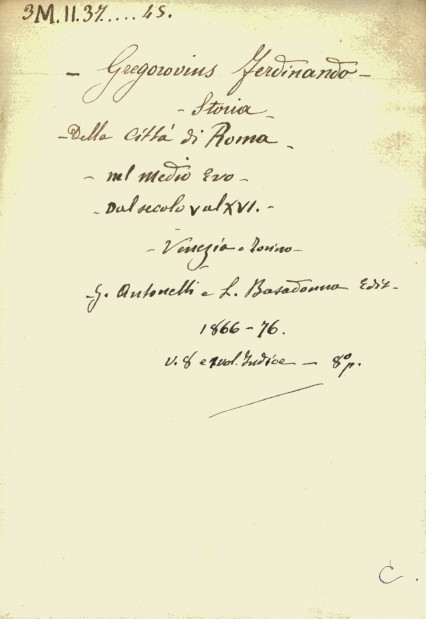 3M.II.37....45.
- Gregorovius Ferdinando -
- Storia -
- Della Città di Roma -
- nel medio Evo -
- Dal secolo V al XVI. -
- Venezia e Torino -
- G. Antonelli e L. Basadonna Edit -
1866-76.
v. 8 e 1 vol. Indice - 8º p.
C.